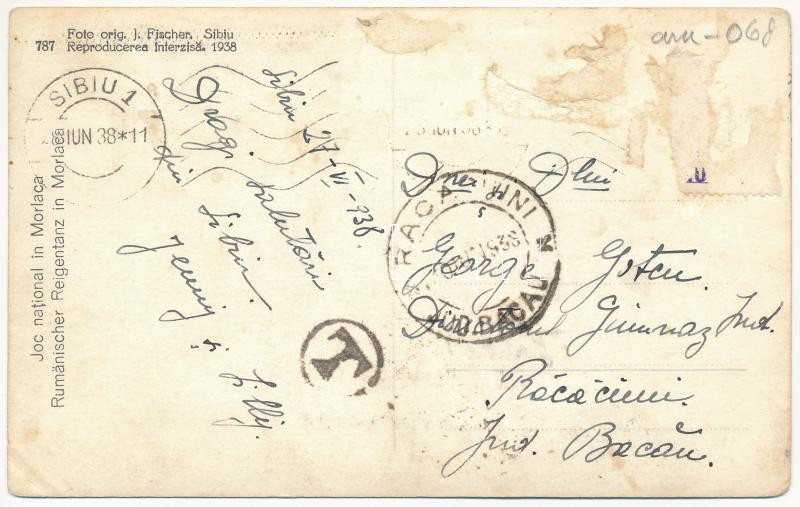 Foto orig. J. Fischer, Sibiu
787 Reproducerea Interzisă. 1938
aru-068
SIBIU 1
IUN 38*11
IUN 38
Joc național in Morlaca
Rumänischer Reigentanz in Morlaca
Sibiu 27-VI-938.
Dragi salutări
din Sibiu.
Jenny și Lilly.
T
RACACIUNI
1938
JUD. BACAU
U
Dnei și Dlui
George Goteu
Gimnaz Ind.
Răcăciuni.
Jud. Bacău.